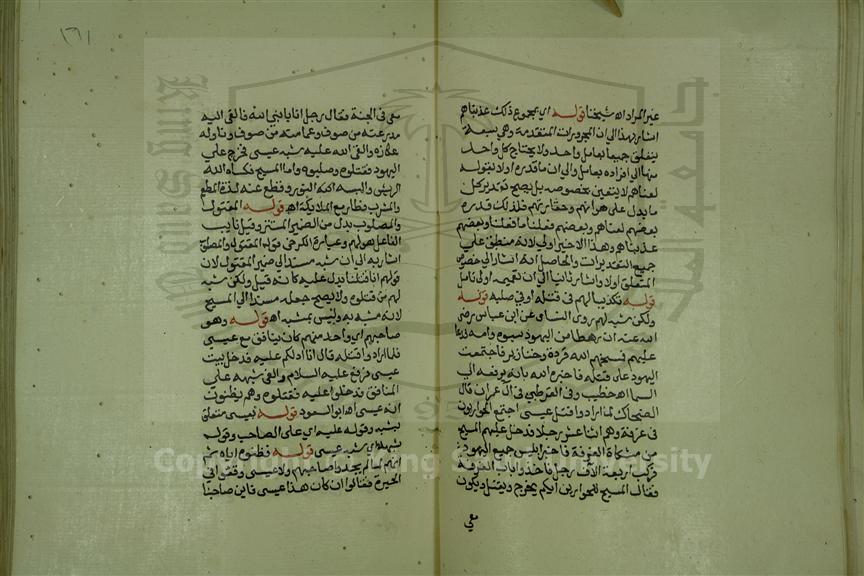 ١٦١
عبر المراد اه شيخنا قوله اي بمجموع ذلك عذبناهم
اشار بهذا الى ان المجرورات المتقدمة وهي سبعة
يتعلق جميعها بعامل واحد ولا يحتاج كل واحد
منها الى افراده بعامل والى ان ما قدره اولا بقوله
لعناهم لا يتعين بخصوصه بل يصح تقدير كل
ما يدل على هوانهم وحقارتهم فلذلك قدره
بعضهم لعناهم وبعضهم فعلنا ما فعلنا وبعضهم
عذبناهم وهذا الاخير اولى لانه منطبق على
جميع التقديرات والحاصل انه اشار الى خصوص
المتعلق اولا واشار ثانيا الى ان تعميمه اولى تامل
قوله تكذيبا لهم في قتله اوفي صلبه قوله
ولكن شبه لهم روى النسائي عن ابن عباس رضي
الله عنه ان رهطا من اليهود سبوه وامه فدعا
عليهم فمسخهم الله قردة وخنازير فاجتمعت
اليهود على قتله فاخبره الله بانه يرفعه الى
السماء اه خطيب وفي القرطبي في ال عمران قال
الضحاك لما ارادوا قتل عيسى اجتمع الحواريون
في غرفة وهم اثنا عشر رجلا فدخل عليهم المسيح
من مشكاة الغرفة فاخبر ابليس جميع اليهود
فركب اربعة الاف رجل فاخذوا باب الغرفة
فقال المسيح للحواريين ايكم يخرج ويقتل ويكون
معي
معي في الجنة فقال رجل انا يا نبي الله فالقى اليه
مدرعته من صوف وعمامته من صوف وناوله
عكازه والقى الله عليه شبه عيسى فخرج على
اليهود فقتلوه وصلبوه واما المسيح فكساه الله
الريش والبسه النور وقطع عنه لذة المطعم
والمشرب فطار مع الملائكة اه قوله المقتول
والمصلوب بدل من الضمير المستتر وقيل نايب
الفاعل هو لهم وعبارة الكرخي قوله المقتول والمصلوب
اشار به الى ان شبه مسند الى ضمير المقتول لان
قولهم انا قتلنا يدل عليه كانه قيل ولكن شبه
لهم من قتلوه ولا يصح جعله مسندا الى المسيح
لانه مشبه به وليس بمشبه اه قوله وهو
صاحبهم اي واحد منهم كان ينافق مع عيسى
فلما ارادوا قتله قال انا ادلكم عليه فدخل بيت
عيسى فرفع عليه السلام والقى شبهه على
المنافق فدخلوا عليه فقتلوه وهم يظنون
انه عيسى اه ابو السعود قوله بعيسى متعلق
بشبه وقوله عليه اي على الصاحب وقوله
شبهه اي شبه عيسى قوله فظنوه اياه
انهم لما لم يجدوا صاحبهم ولا عيسى وقعوا في
الحيرة فقالوا ان كان هذا عيسى فاين صاحبنا
Copyright © King Saud University
جامعة الملك
King Saud